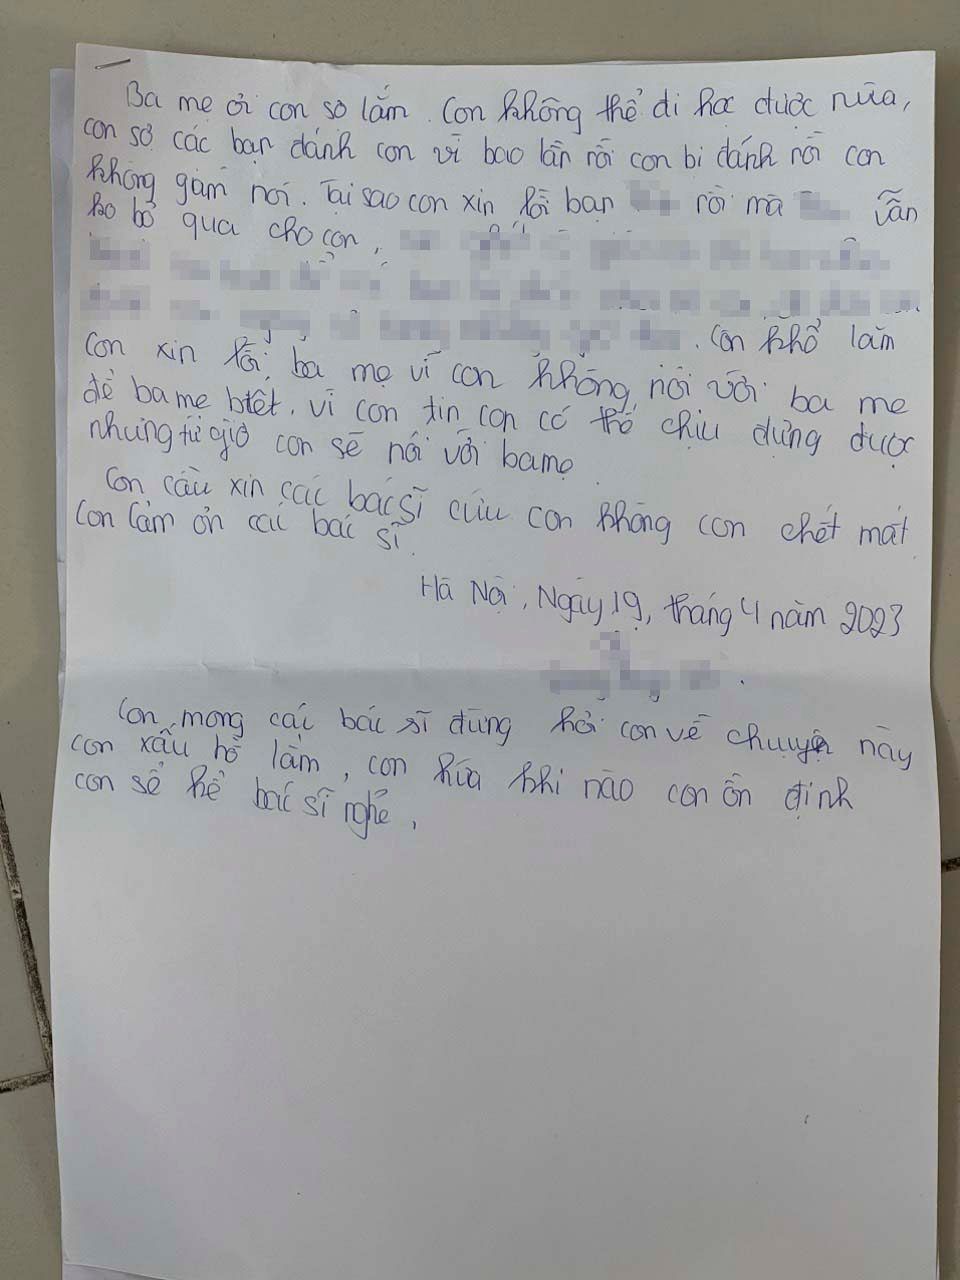 Ba mẹ ơi con sợ lắm. Con không thể đi học được nữa,
con sợ các bạn đánh con vì bao lần rồi con bị đánh rồi con
không giám nói. Tại sao con xin lỗi bạn rồi mà vẫn
ko bỏ qua cho con,
. Con khổ lắm
Con xin lỗi ba mẹ vì con không nói với ba mẹ
để ba mẹ biết. vì con tin con có thể chịu đựng được
nhưng từ giờ con sẽ nói với ba mẹ
Con cầu xin các bác sĩ cứu con không con chết mất
Con cảm ơn các bác sĩ.
Hà Nội, Ngày 19, tháng 4 năm 2023
Con mong các bác sĩ đừng hỏi con về chuyện này
con xấu hổ lắm, con hứa khi nào con ổn định
con sẽ kể bác sĩ nghe,